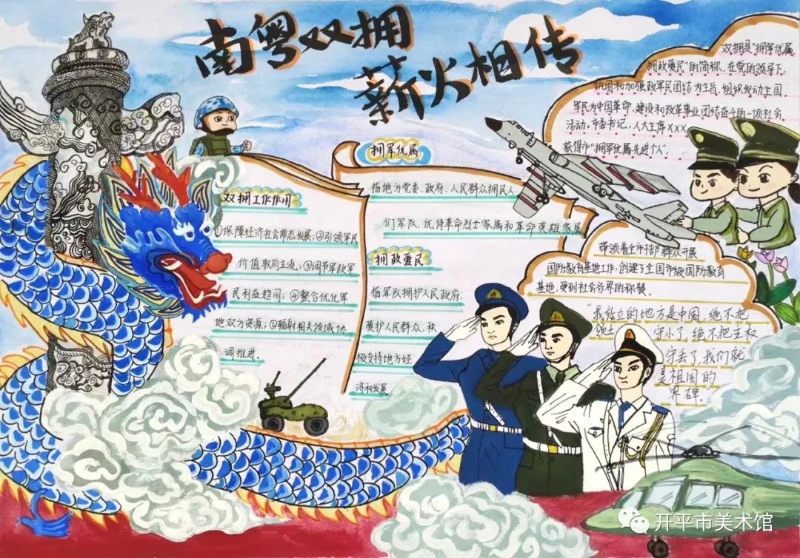 南粤双拥
薪火相传
双拥工作作用
①保障经济社会常态发展;②引领军民
价值取向主流;③调节军政军
民利益趋同;④整合优化军
地双方资源;⑤辐射相关领域协
调推进。
拥军优属
指地方党委、政府、人民群众拥民人
们军队,优待革命烈士家属和革命英雄家属
拥政爱民
指军队拥护人民政府、
爱护人民群众,积
极支持地方经
济和发展
双拥是"拥军优属
拥政爱民"的简称,在党的领导下
巩固和加强政军民团结为主旨,组织发动全国
军民为中国革命、建设和改革事业团结奋斗的一项社会
活动,市委书记、人大主席XXX
获得市"拥军优属先进个人"。
带领着全市干部群众开展
国防教育基地工作,创建了全国市级国防教育
基地,受到社会各界的称赞。
"我站立的地方是中国,绝不把
领土守小了,绝不把主权
守丢了,我们就
是祖国的
界碑。
开平市美术馆